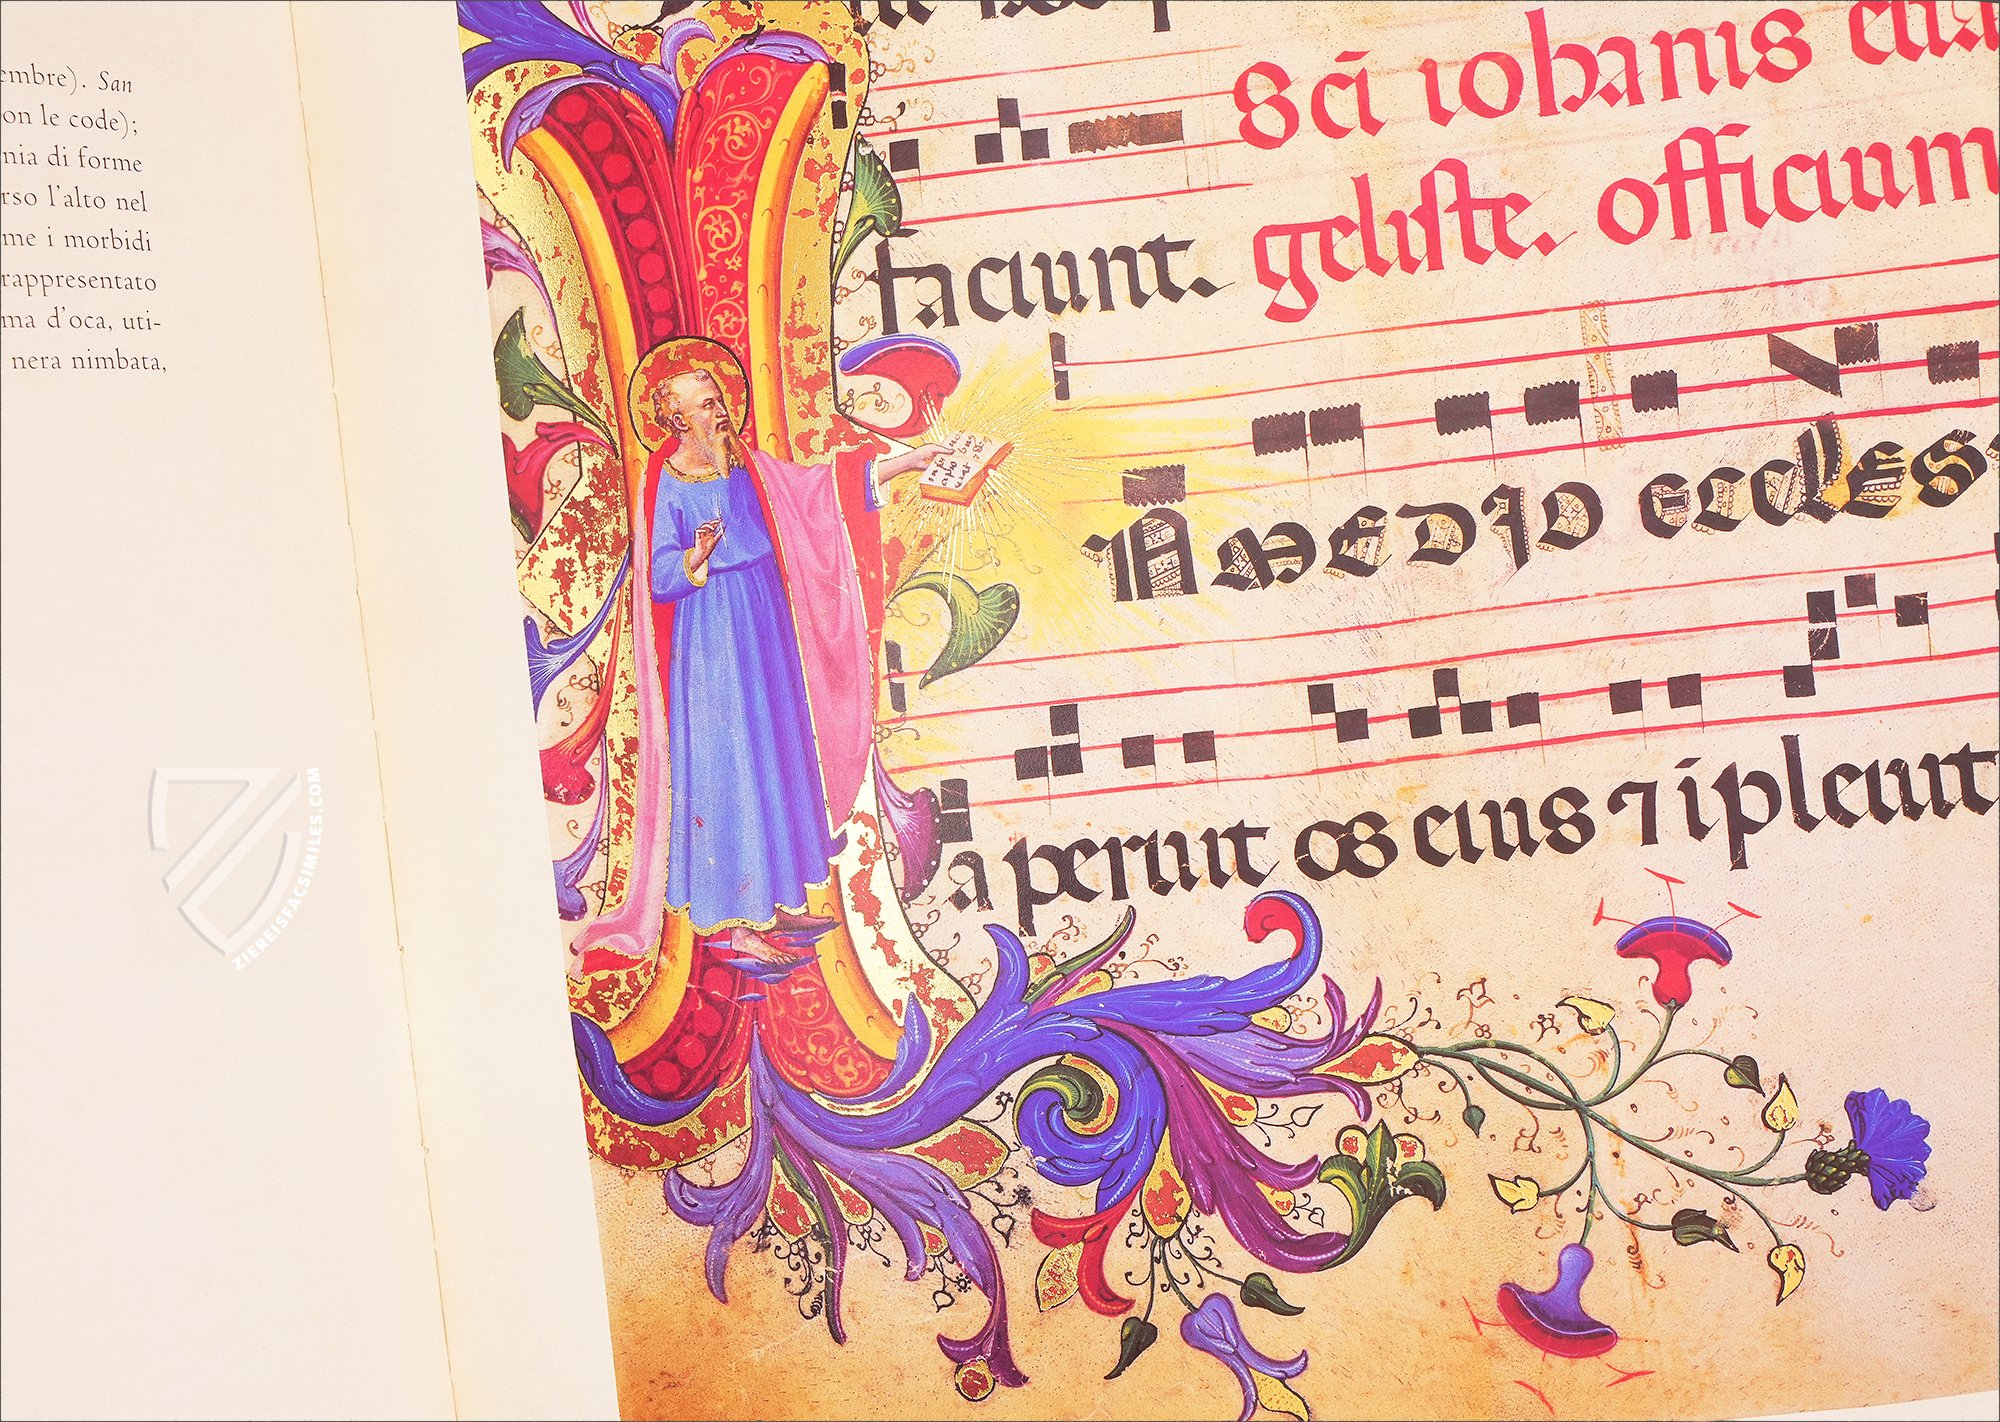 embre). San
on le code);
nia di forme
rso l'alto nel
me i morbidi
rappresentato
ma d'oca, uti-
nera nimbata,
Sci iohanis eua
faciunt. geliste. officium
N MEDIO ECCLES
aperuit os eius ⁊ ipleuit
ZIEREISFACSIMILES.COM